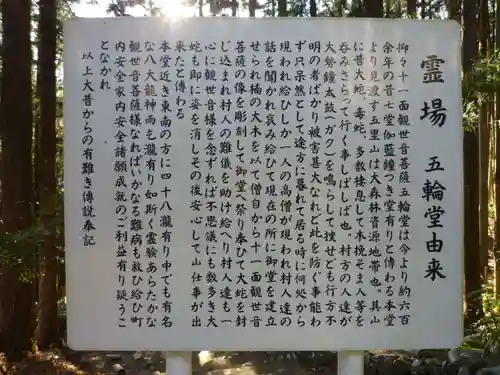 霊場　五輪堂由来
抑々十一面観世音菩薩五輪堂は今より約六百
余年の昔七堂伽藍鐘つき堂有りと傳わる本堂
より見渡す五里山は大森林資源地帯也。其山
に昔大蛇、毒蛇、多数棲息して木挽そま人等を
呑みさらって行く事しばしば也。村方の人達が
大勢鐘太鼓(ガク)を鳴らして捜せども行方不
明の者ばかり被害甚大なれど此を防ぐ事能わ
ず只呆然として途方に暮れて居る時に何処から
現われ給ひしか一人の高僧が現われ村人達の
話を聞かれ哀み給ひて現在の所に御堂を建立
せられ橘の大木を以て僧自から十一面観世音
菩薩の像を彫刻して御堂へ祭り奉ひて大蛇を封
じ込まれ村人の難儀を助け給へり村人達も一
心に観世音様を念ずれば不思議にも数多き大
蛇も即に姿を消しその後安心して山仕事が出
来たと傳わる
本堂近き東南の方に四十八瀧有り中でも有名
な八大龍神雨乞瀧有り如斯く霊験あらたかな
観世音菩薩様なればいかなる難病も救ひ給ひ町
内安全家内安全諸願成就のご利益有り疑うこ
となかれ
以上大昔からの有難き傳説奉記